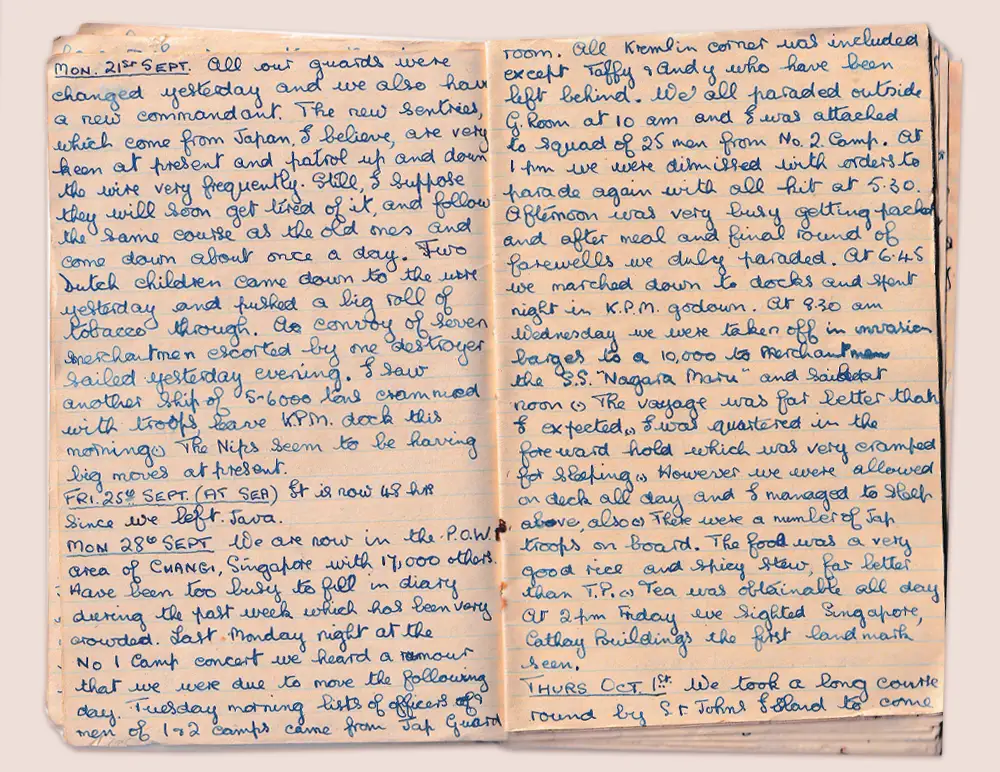 MON. 21ST SEPT. All our guards were
changed yesterday and we also have
a new commandant. The new sentries,
which come from Japan, I believe, are very
keen at present and patrol up and down
the wire very frequently. Still, I suppose
they will soon get tired of it, and follow
the same course as the old ones and
come down about once a day. Two
Dutch children came down to the wire
yesterday and pushed a big roll of
tobacco through. A convoy of seven
merchantmen escorted by one destroyer
sailed yesterday evening. I saw
another ship of 5-6000 tons crammed
with troops, leave K.P.M. dock this
morning. The Nips seem to be having
big moves at present.
FRI. 25th SEPT. (AT SEA) It is now 48 hrs
since we left Java.
MON 28th SEPT We are now in the P.O.W.
area of CHANGI, Singapore with 17,000 others.
Have been too busy to fill in diary
during the past week which has been very
crowded. Last Monday night at the
No 1 Camp concert we heard a rumour
that we were due to move the following
day. Tuesday morning lists of officers &
men of 1 & 2 camps came from Jap Guard
room. All Kremlin corner was included
except Taffy & Andy who have been
left behind. We all paraded outside
G. Room at 10 am and I was attached
to squad of 25 men from No. 2. Camp. At
1 pm we were dismissed with orders to
parade again with all kit at 5.30.
Afternoon was very busy getting packed
and after meal and final round of
farewells we duly paraded. At 6.45
we marched down to docks and spent
night in K.P.M. godown. At 8.30 am
Wednesday we were taken off in invasion
barges to a 10,000 to merchantmen
the S.S. "Nagara Maru" and sailed at
noon. The voyage was far better than
I expected. I was quartered in the
foreward hold which was very cramped
for sleeping. However we were allowed
on deck all day and I managed to sleep
above, also. There were a number of Jap
troops on board. The food was a very
good rice and spicy stew, far better
than T.P. Tea was obtainable all day
At 2 pm Friday we sighted Singapore,
Cathay Buildings the first landmark
seen.
THURS OCT 1st. We took a long course
round by St. Johns Island to come